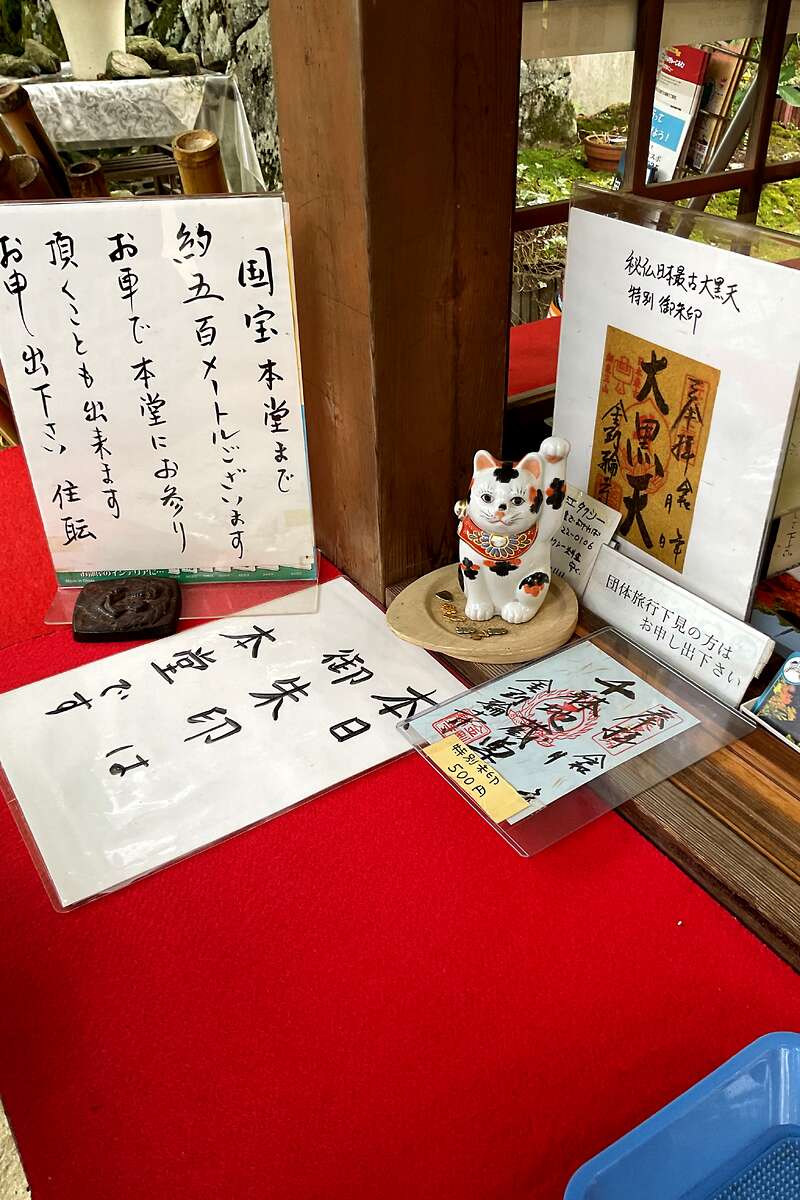 国宝本堂まで
約五百メートルございます
お車で本堂にお参り
頂くことも出来ます
お申し出下さい 住職
本日
御朱印は
本堂です
秘仏日本最古大黒天
特別 御朱印
奉拝
大黒天
金剛輪寺
タクシー
22-0106
団体旅行下見の方は
お申し出下さい
奉拝
千躰地蔵
金剛輪寺
特別朱印
500円